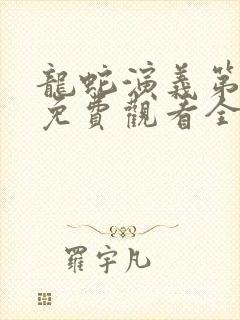 龍蛇演義第
免費觀看全
羅宇凡